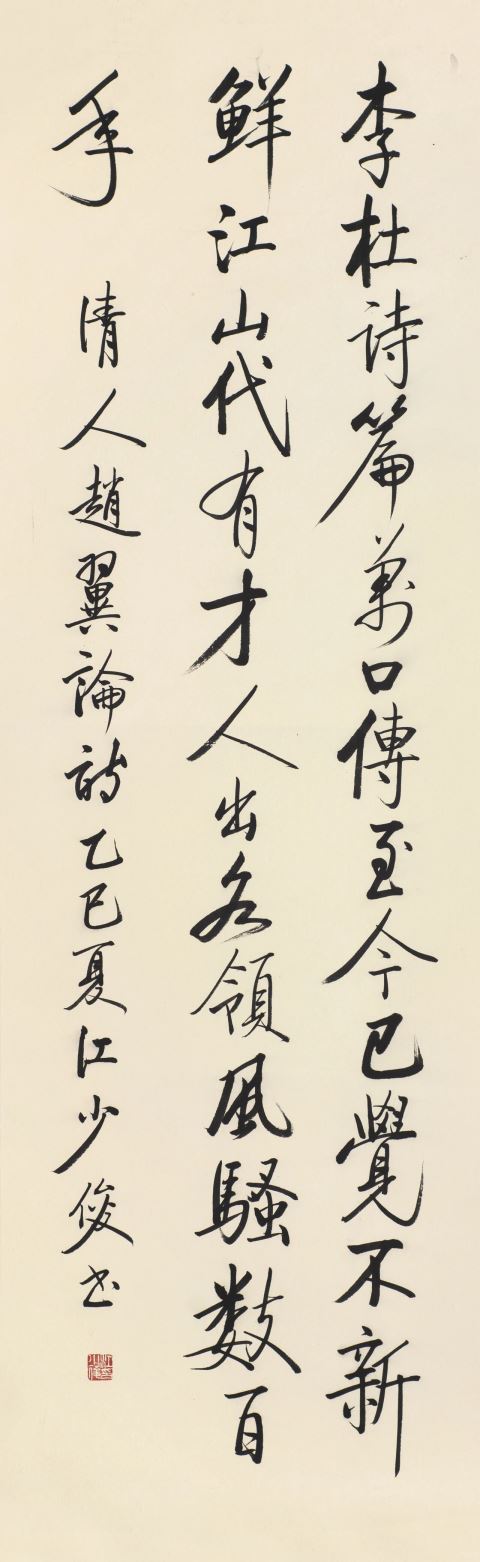 李杜詩篇萬口傳至今已覺不新
鮮江山代有才人出各領風騷数百
年 清人趙翼論詩乙巳夏江少俊书